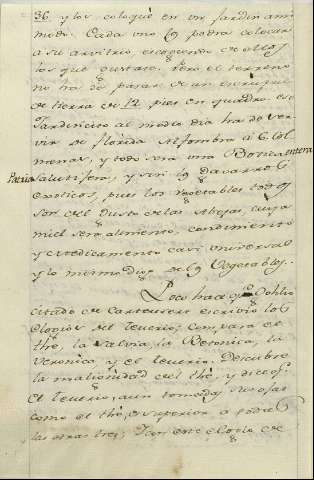 36 y los coloqué en un Jardin a mi
modo. Cada uno podra colocar
a su arvitrio, escogiendo de ellos
los que gustase. Pero el terreno
no ha de pasar de un
de tierra de 12 pies en quadro. ese
Jardincito al medio dia ha de ser
vir de florida Alfombra á 6. Col
menas, y todo sera una Botica entera
Patria salutifera, y sin
exoticos, pues los vegetables todos
son del Gusto de las Abejas, cuya
miel sera alimento, condimento
y medicamento casi universal
y lo mismo digo de los Vegetables.
Poco hace que
citado de Carteuser escrivio los
Elogios del teucrio; compara el
thé, la Salvia, la Betonica, la
Veronica y el teucrio. Descubre
la malignidad del thé, y dice q.
el teucrio, aun tomadas sus ojas
como el thé, es superior a todas
las otras tres; Tan este elogio de